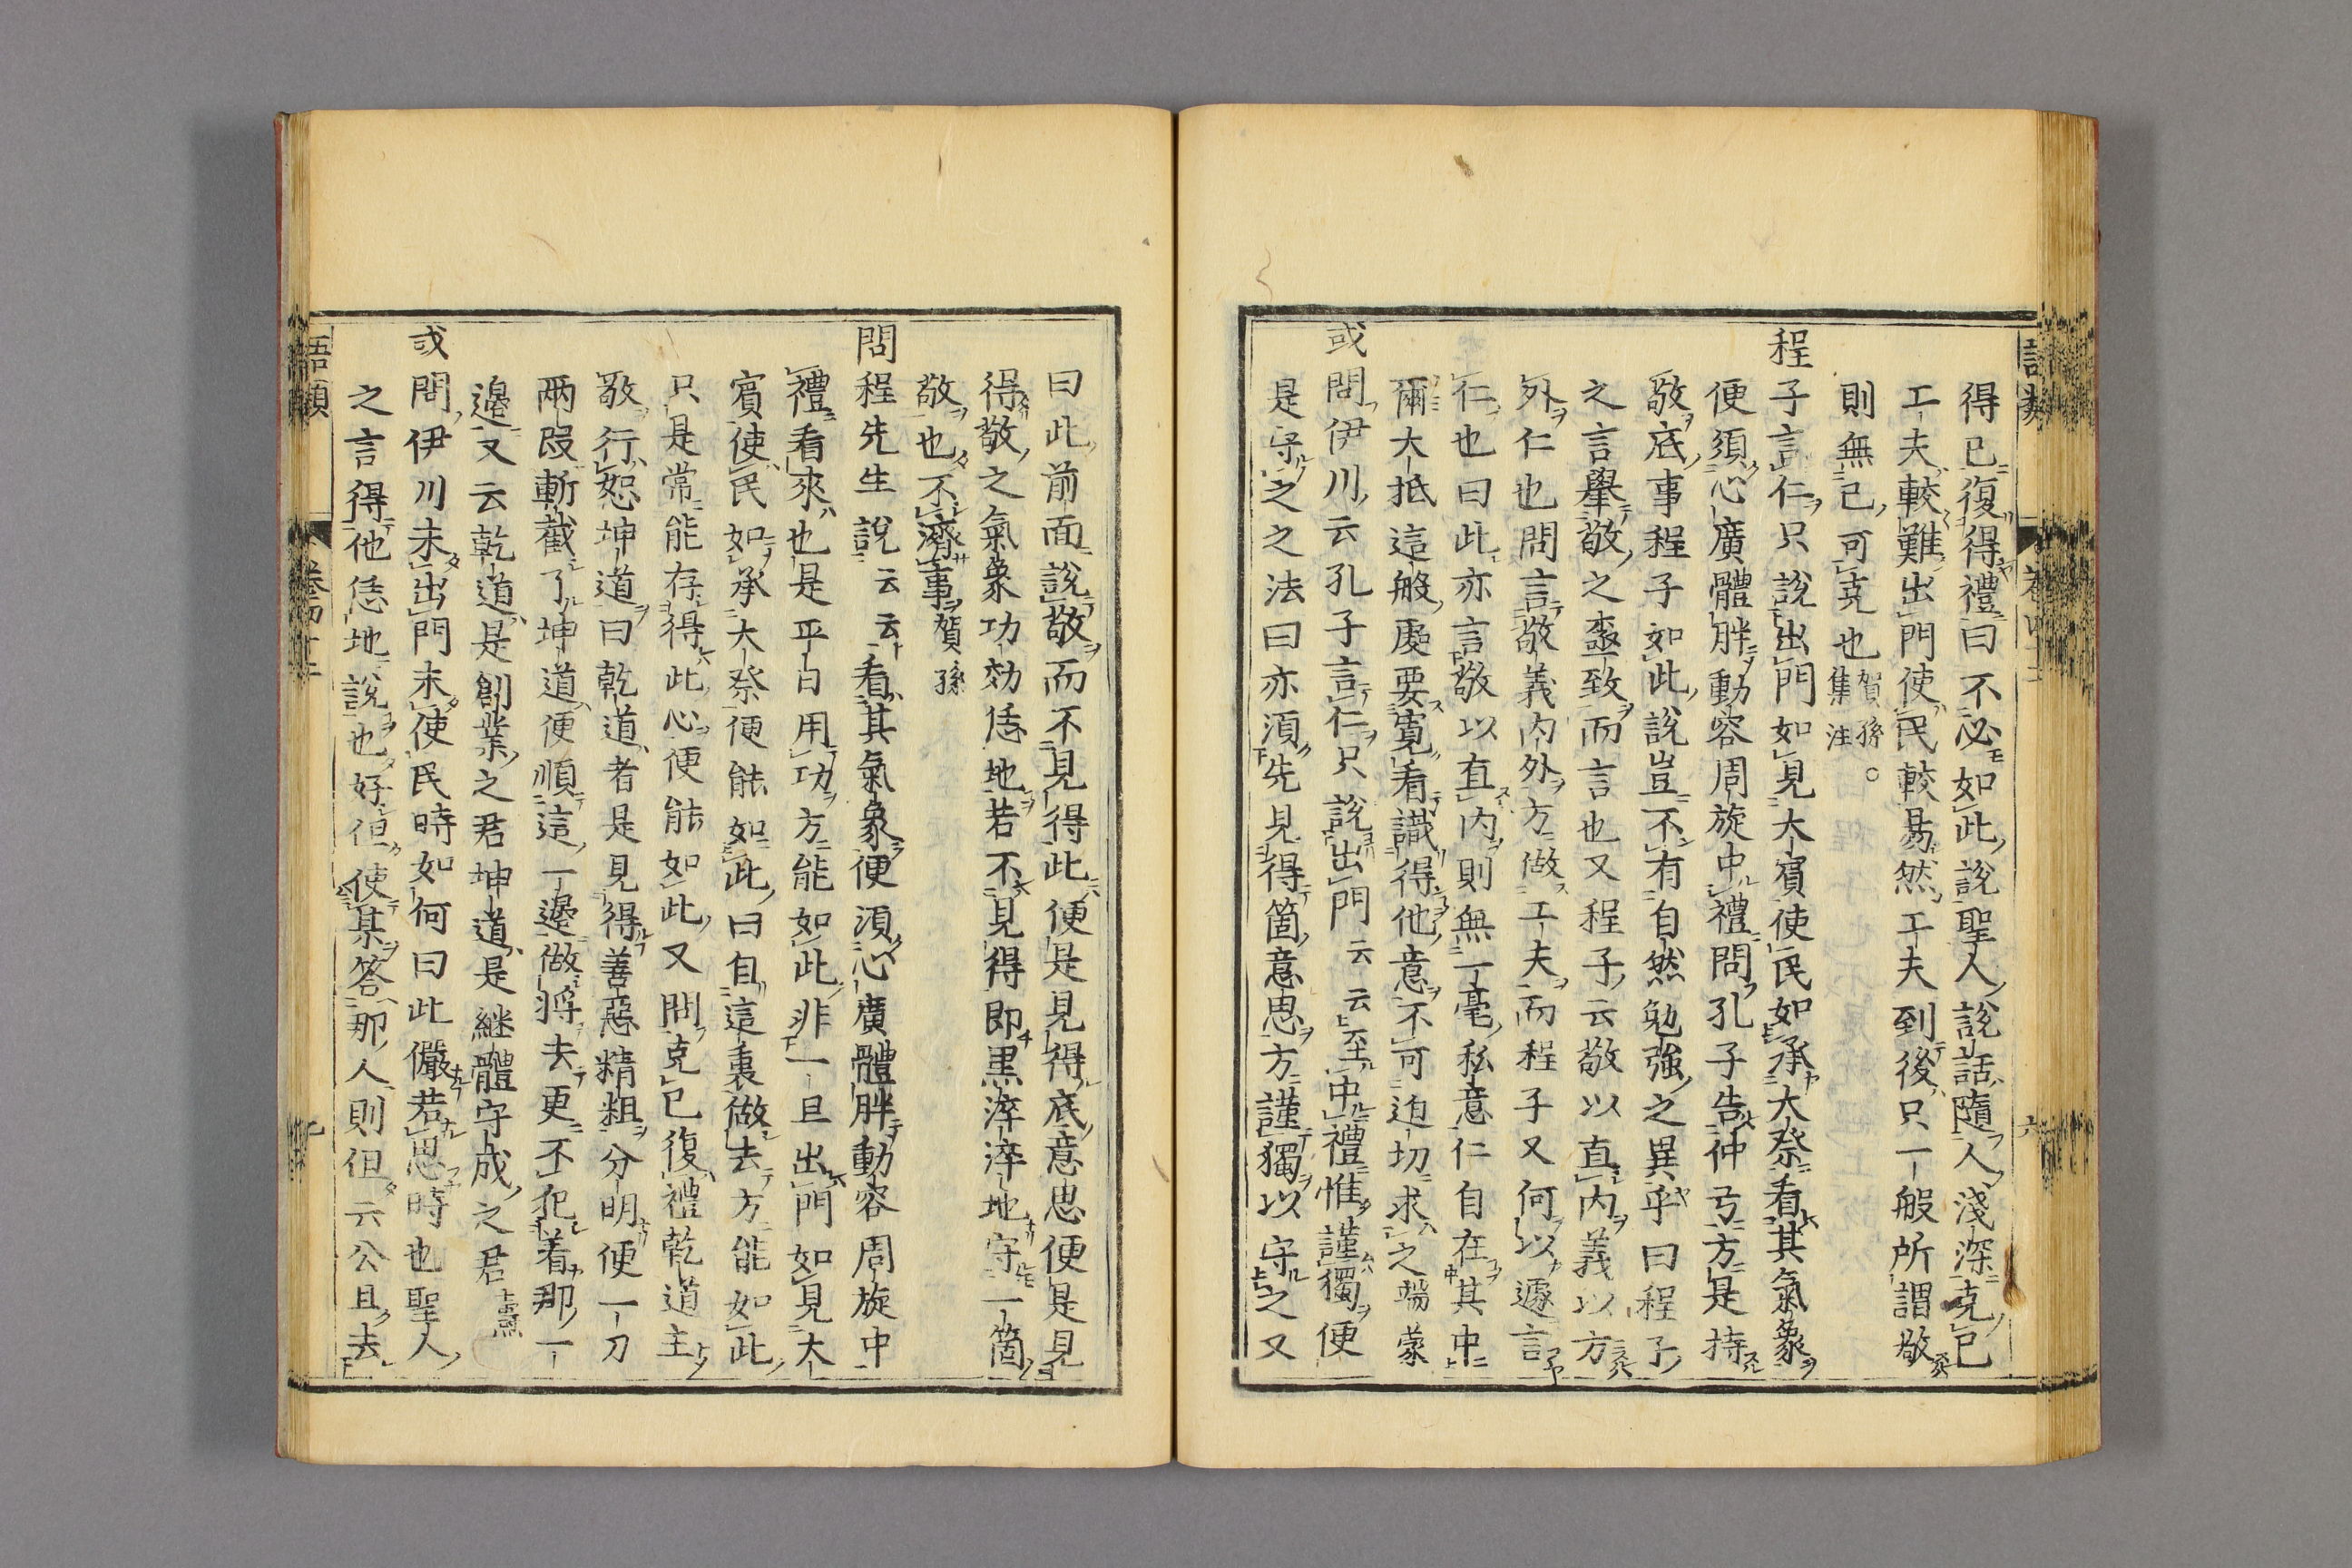 得已復得禮曰不必如此說聖人說話隨人淺深克已
工夫較難出門使民較易然工夫到後只一般所謂敬
則無已可克也賀孫集注○
程子言仁只說出門如見大賓使民如承大祭看其氣象
便須心廣體胖動容周旋中禮問孔子告仲弓方是持
敬底事程子如此說豈不有自然勉強之異乎曰程子
之言舉敬之極致而言也又程子云敬以直內義以方
外仁也問言敬義內外方做工夫而程子又何以遽言
仁也曰此亦言敬以直內則無一毫私意仁自在其中
爾大抵這般處要寬看識得他意不可迫切求之端蒙
或問伊川云孔子言仁只說出門云云至中禮惟謹獨便
是守之之法曰亦須先見得箇意思方謹獨以守之又
曰此前面說敬而不見得此便是見得底意思便是見
得敬之氣象功効恁地若不見得即黑淬淬地守一箇
敬也不濟事賀孫
問程先生說云云看其氣象便須心廣體胖動容周旋中
禮看來也是平日用功方能如此非一旦出門如見大
賓使民如承大祭便能如此曰自這裏做去方能如此
只是常能存得此心便能如此又問克已復禮乾道主
敬行恕坤道曰乾道者是見得善惡精粗分明便一刀
兩段斬截了坤道便順這一邊做將去更不犯着那一
邊又云乾道是創業之君坤道是継體守成之君燾
或問伊川未出門未使民時如何曰此儼若思時也聖人
之言得他恁地說也好但使某答那人則但云公且去
語類
卷四十二